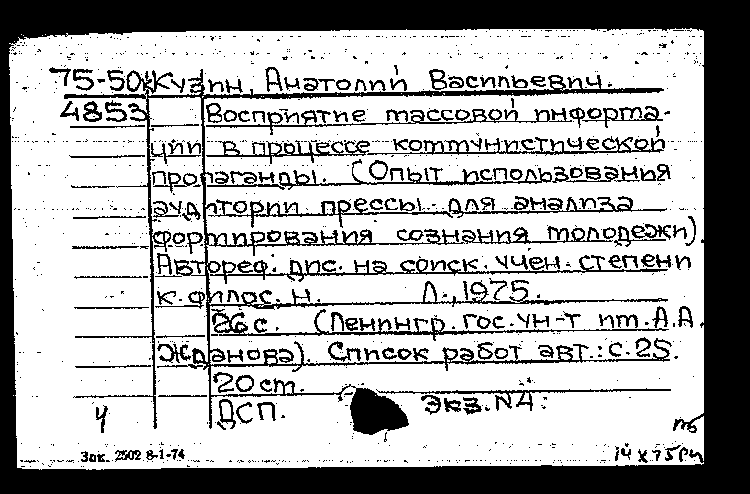 75-50 Кузин, Анатолий Васильевич.
4853 Восприятие массовой информа-
ции в процессе коммунистической
пропаганды. (Опыт использования
аудитории прессы для анализа
формирования сознания молодежи).
Автореф. дис. на соиск. учен. степени
к. филос. н. Л., 1975.
26 с. (Ленингр. гос. ун-т им. А.А.
Жданова). Список работ авт.: с. 25.
20 ст.
ДСП. Экз. N4:
Зак. 2502 8-1-74